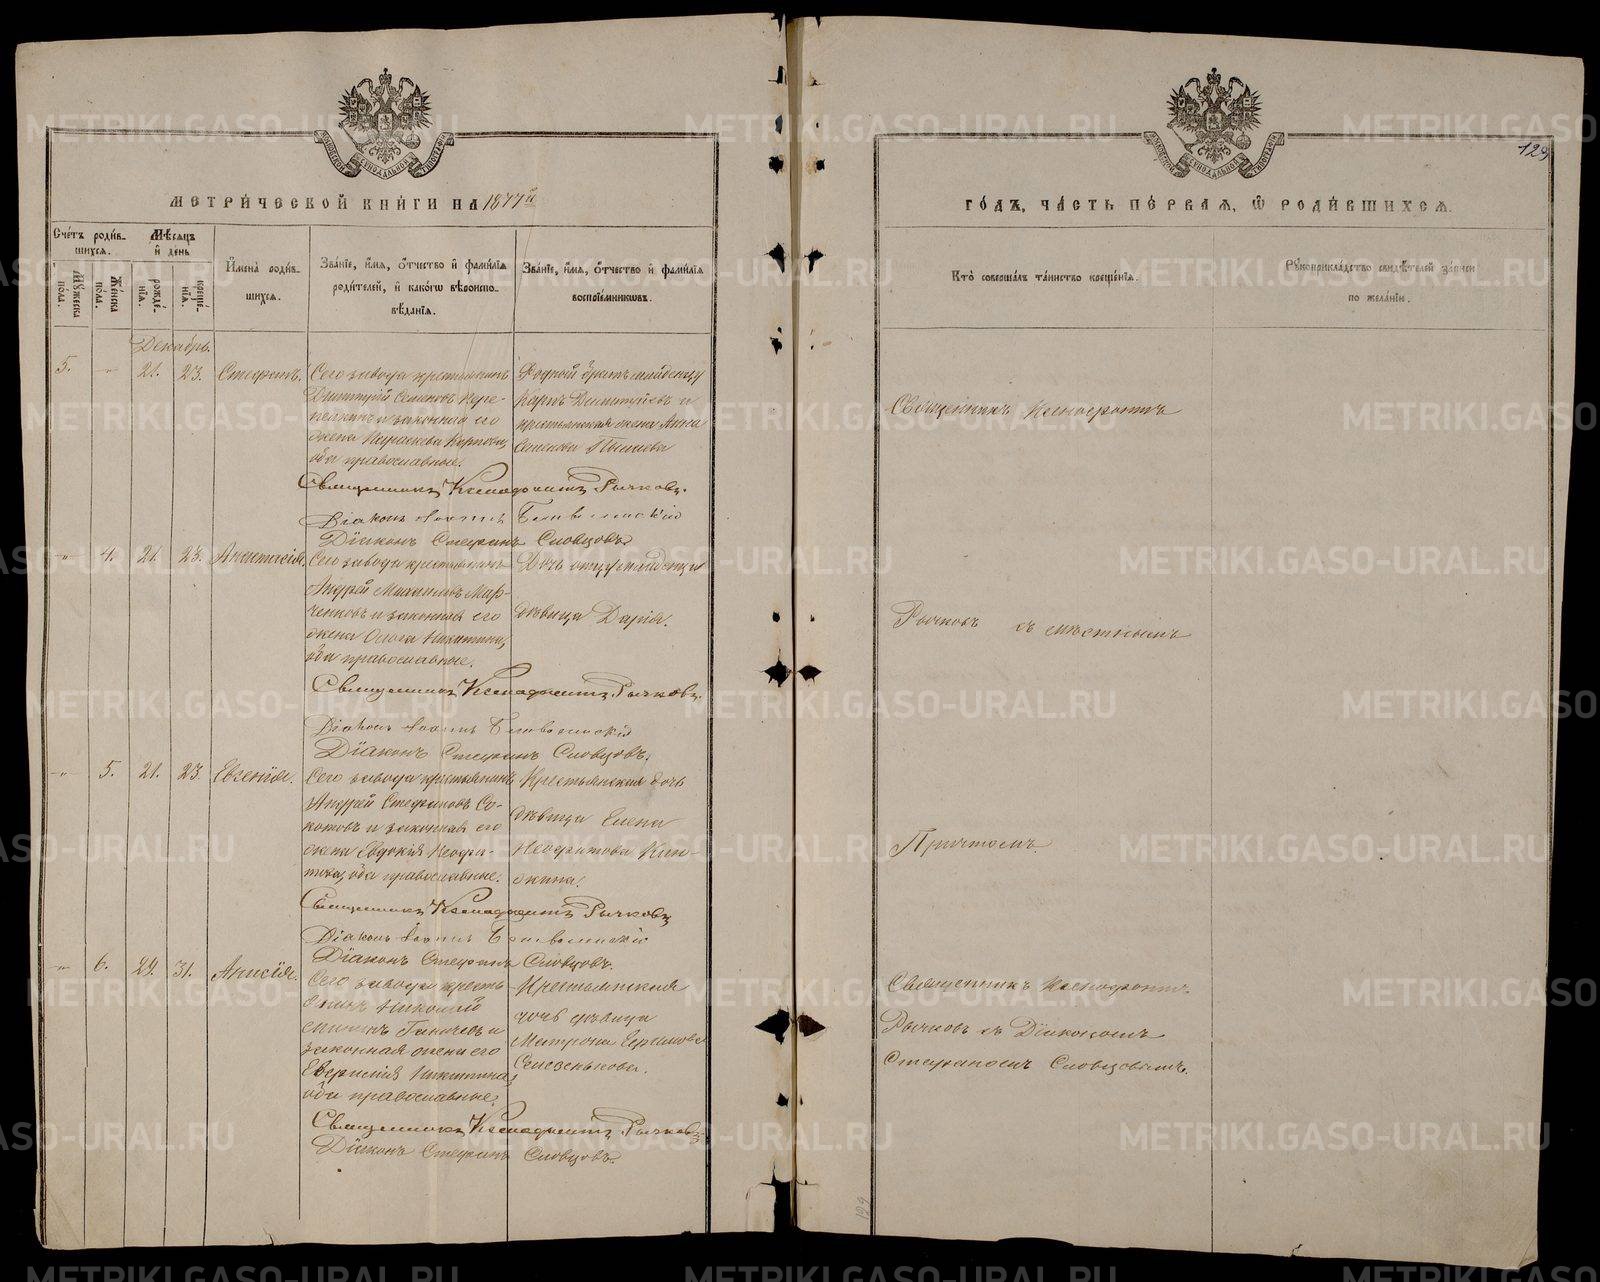 МЕТРИ́ЧЕСКОЙ КНИ́ГИ НА 1877й
Сче́тъ роди́в-
шихся.
Мѣ́сяцъ
и҆ де́нь
Му́жеска
по́ла.
Же́нска
по́ла.
рожде́-
нїя.
креще́-
нїя.
И҆мена̀ роди́в-
шихся.
Зва́нїе, и҆́мя, ѻ҆́тчество и҆ фами́лїя
роди́телей, и҆ како́гѡ вѣроиспо-
вѣ́данїя.
Зва́нїе, и҆́мя, ѻ҆́тчество и҆ фами́лїя
воспрїе́мникѡвъ.
Декабрь.
5. " 21. 23. Стефанъ.
Сего завода крестьянинъ
Димитрій Семеновъ Пере-
и законная его
жена Параскева Карпова,
оба православные.
Родной братъ младенцу
Карпъ Димитріевъ и
крестьянская жена Анна
Семенова
Священникъ Ксенофонтъ Рычковъ.
Діаконъ Іоаннъ
Діаконъ Стефанъ Словцовъ.
" 4. 21. 23. Анастасія.
Сего завода крестьянинъ
Андрей Михаиловъ Мар-
ченковъ и законная его
жена Ольга Никитина,
оба православные.
Дочь отцу младенца
дѣвица Дарія.
Священникъ Ксенофонтъ Рычковъ.
Діаконъ Іоаннъ
Діаконъ Стефанъ Словцовъ.
" 5. 21. 23. Евгенія.
Сего завода крестьянинъ
Андрей Стефановъ Со-
и законная его
жена Евдокія Неофи-
това, оба православные.
Крестьянская дочь
дѣвица Елена
Неофитова
Священникъ Ксенофонтъ Рычковъ
Діаконъ Іоаннъ
Діаконъ Стефанъ Словцовъ.
" 6. 29. 31. Анисія.
Сего завода кресть-
янинъ Николай
и
законная жена его
Никитина,
оба православные.
Крестьянская
дочь дѣвица
Матрона
Селезенькова.
Священникъ Ксенофонтъ Рычковъ
Діаконъ Стефанъ Словцовъ.
129
ГО́ДЪ, ЧА́СТЬ ПЕ́РВАЯ, Ѡ҆ РОДИ́ВШИХСЯ.
Кто̀ соверша́лъ та́инство креще́нїя.
Рꙋкоприкла́дство свидѣ́телей за́писи
по жела́нїю.
Священникъ Ксенофонтъ
Рычковъ съ мѣстнымъ
Причтомъ.
Священникъ Ксенофонтъ
Рычковъ съ Діакономъ
Стефаномъ Словцовымъ.
129
METRIKI.GASO-URAL.RU